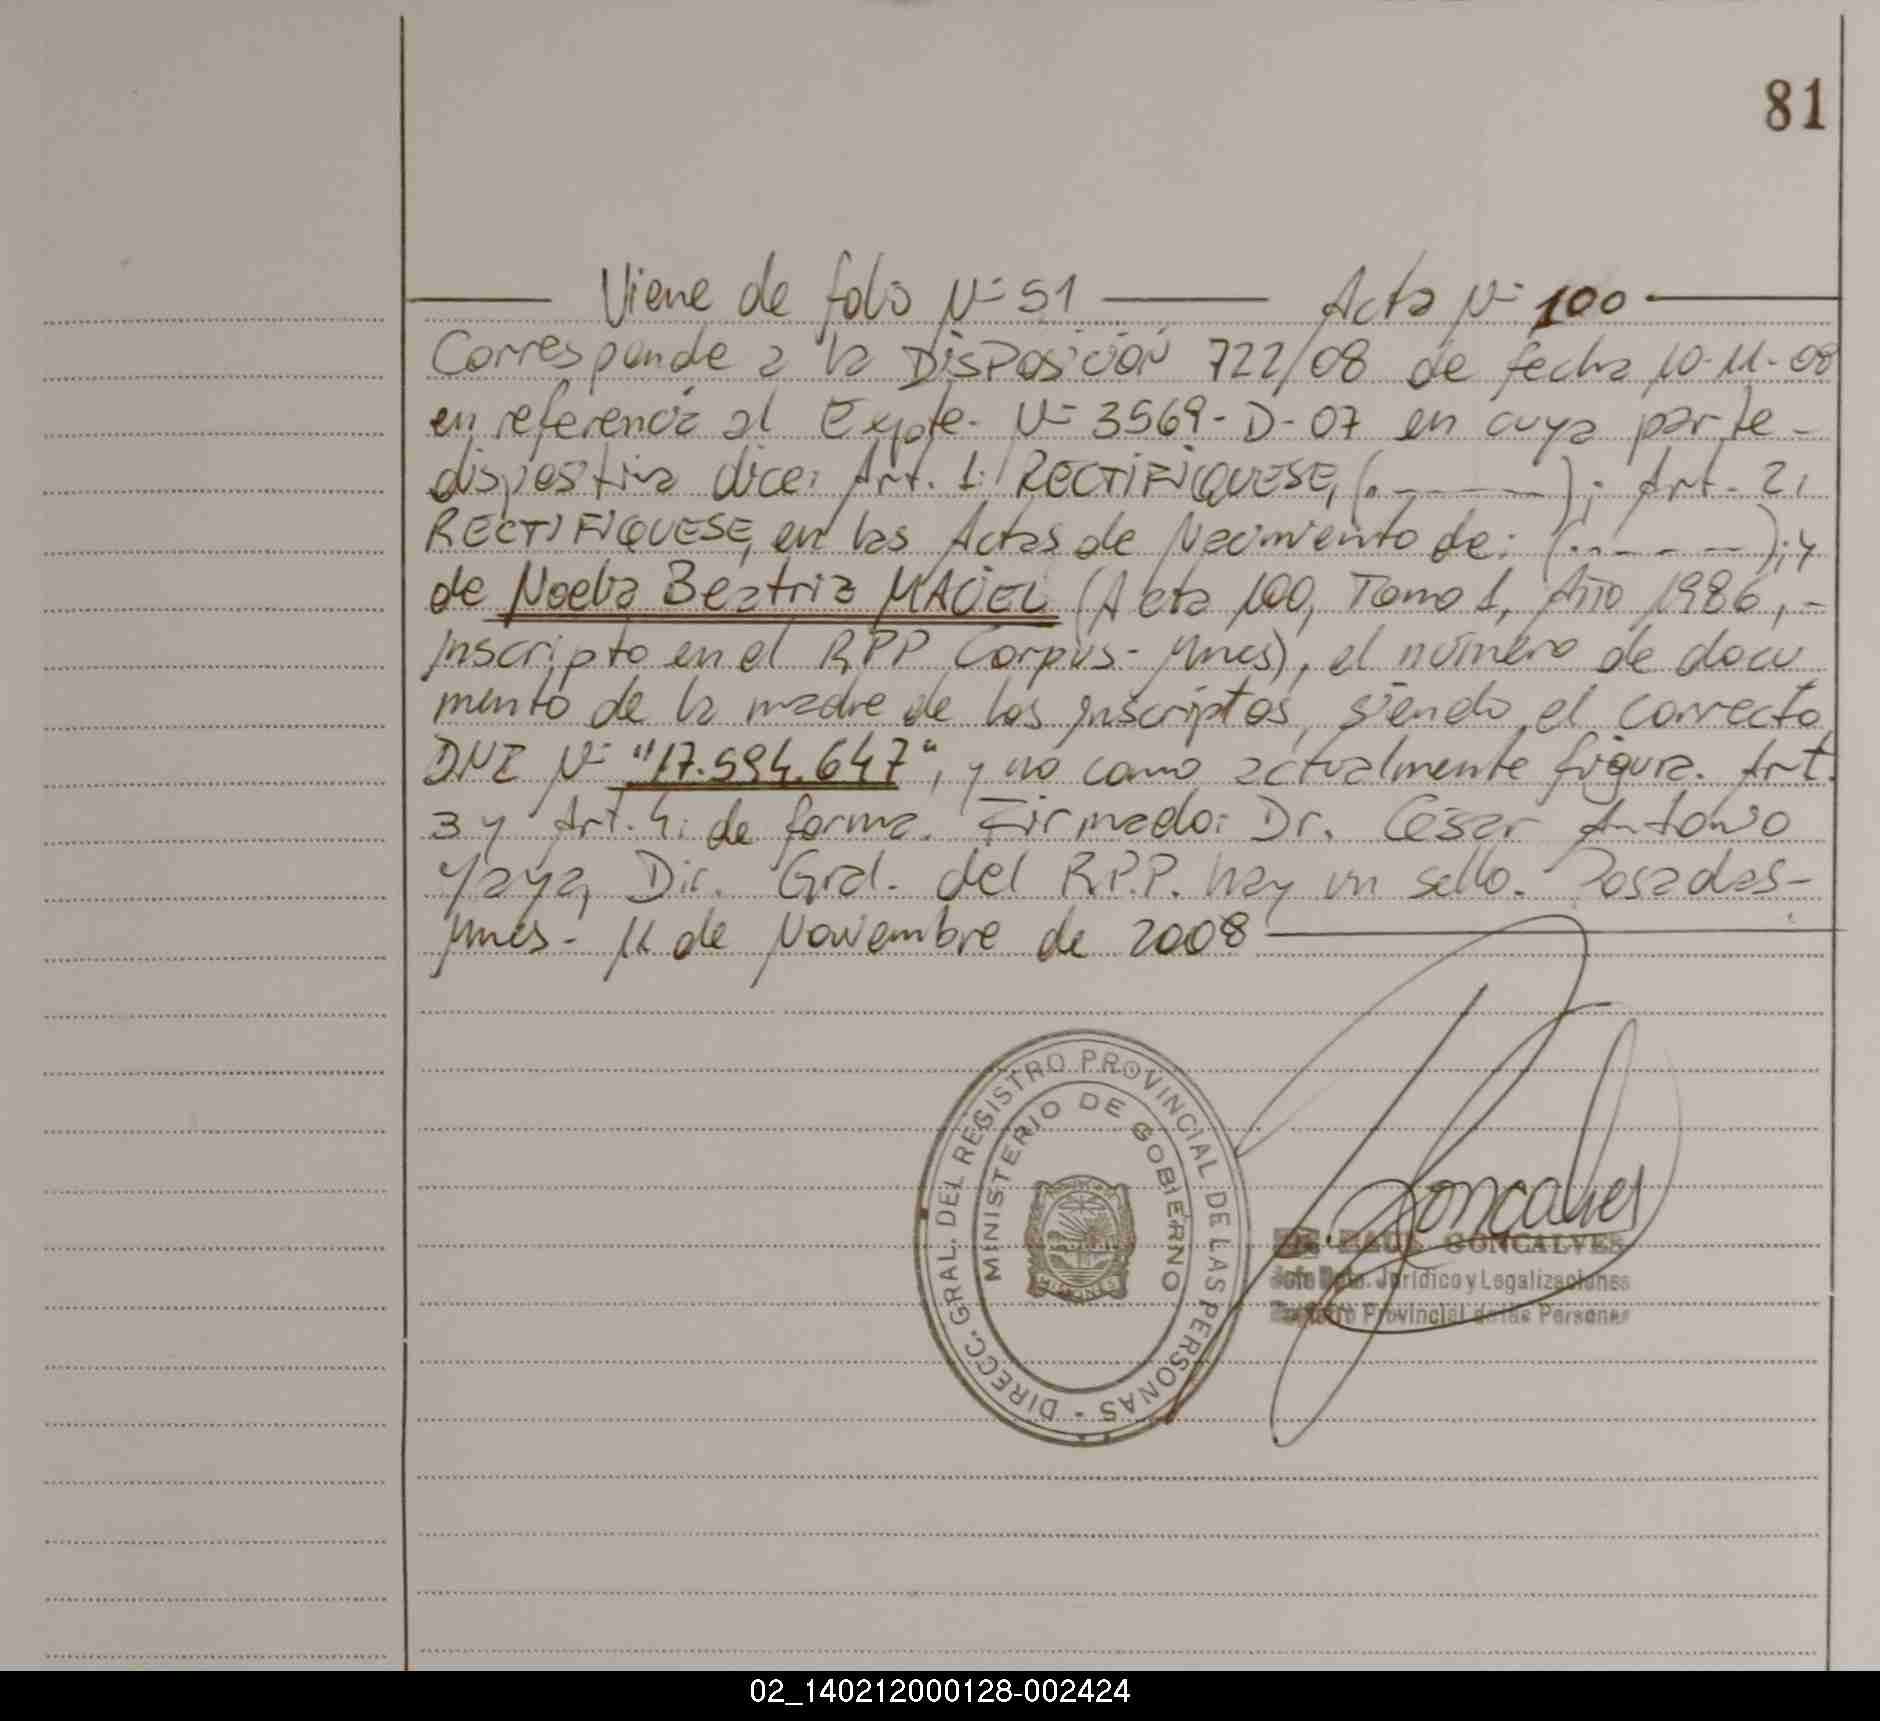 81
Viene de folio Nº 51 Acta Nº 100
Corresponde a la DISPOSICIÓN 722/08 de fecha 10-11-08
en referencia al Expte. Nº 3569-D-07 en cuya parte-
dispositiva dice: Art. 1: RECTIFIQUESE, (.-----); Art. 2:
RECTIFIQUESE, en las Actas de Nacimiento de: (..----); y
de Noelia Beatriz MACIEL (Acta 100, Tomo 1, Año 1986,-
inscripto en el RPP Corpus-Mnes), el número de docu
mento de la madre de los inscriptos, siendo el correcto
DNI Nº "17.594.647", y no como actualmente figura. Art.
3 y Art. 4: de forma. Firmado: Dr. César Antonio
Yaya, Dir. Gral. del R.P.P. hay un sello. Posadas-
Mnes- 11 de Noviembre de 2008
DIRECC. GRAL. DEL REGISTRO PROVINCIAL DE LAS PERSONAS -
MINISTERIO DE GOBIERNO
MISIONES
Goncalves
GONCALVES
Jefe Dpto. Jurídico y Legalizaciones
Registro Provincial de las Personas
02_140212000128-002424